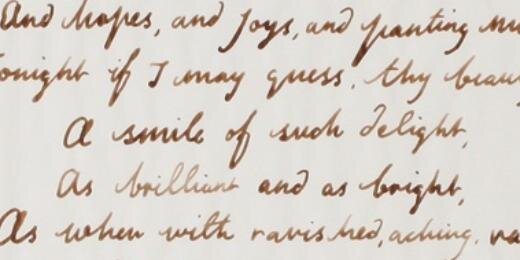 And hopes, and joys, and panting
tonight if I may guess, thy
A smile of such delight,
As brilliant and as bright,
As when with ravished, aching,